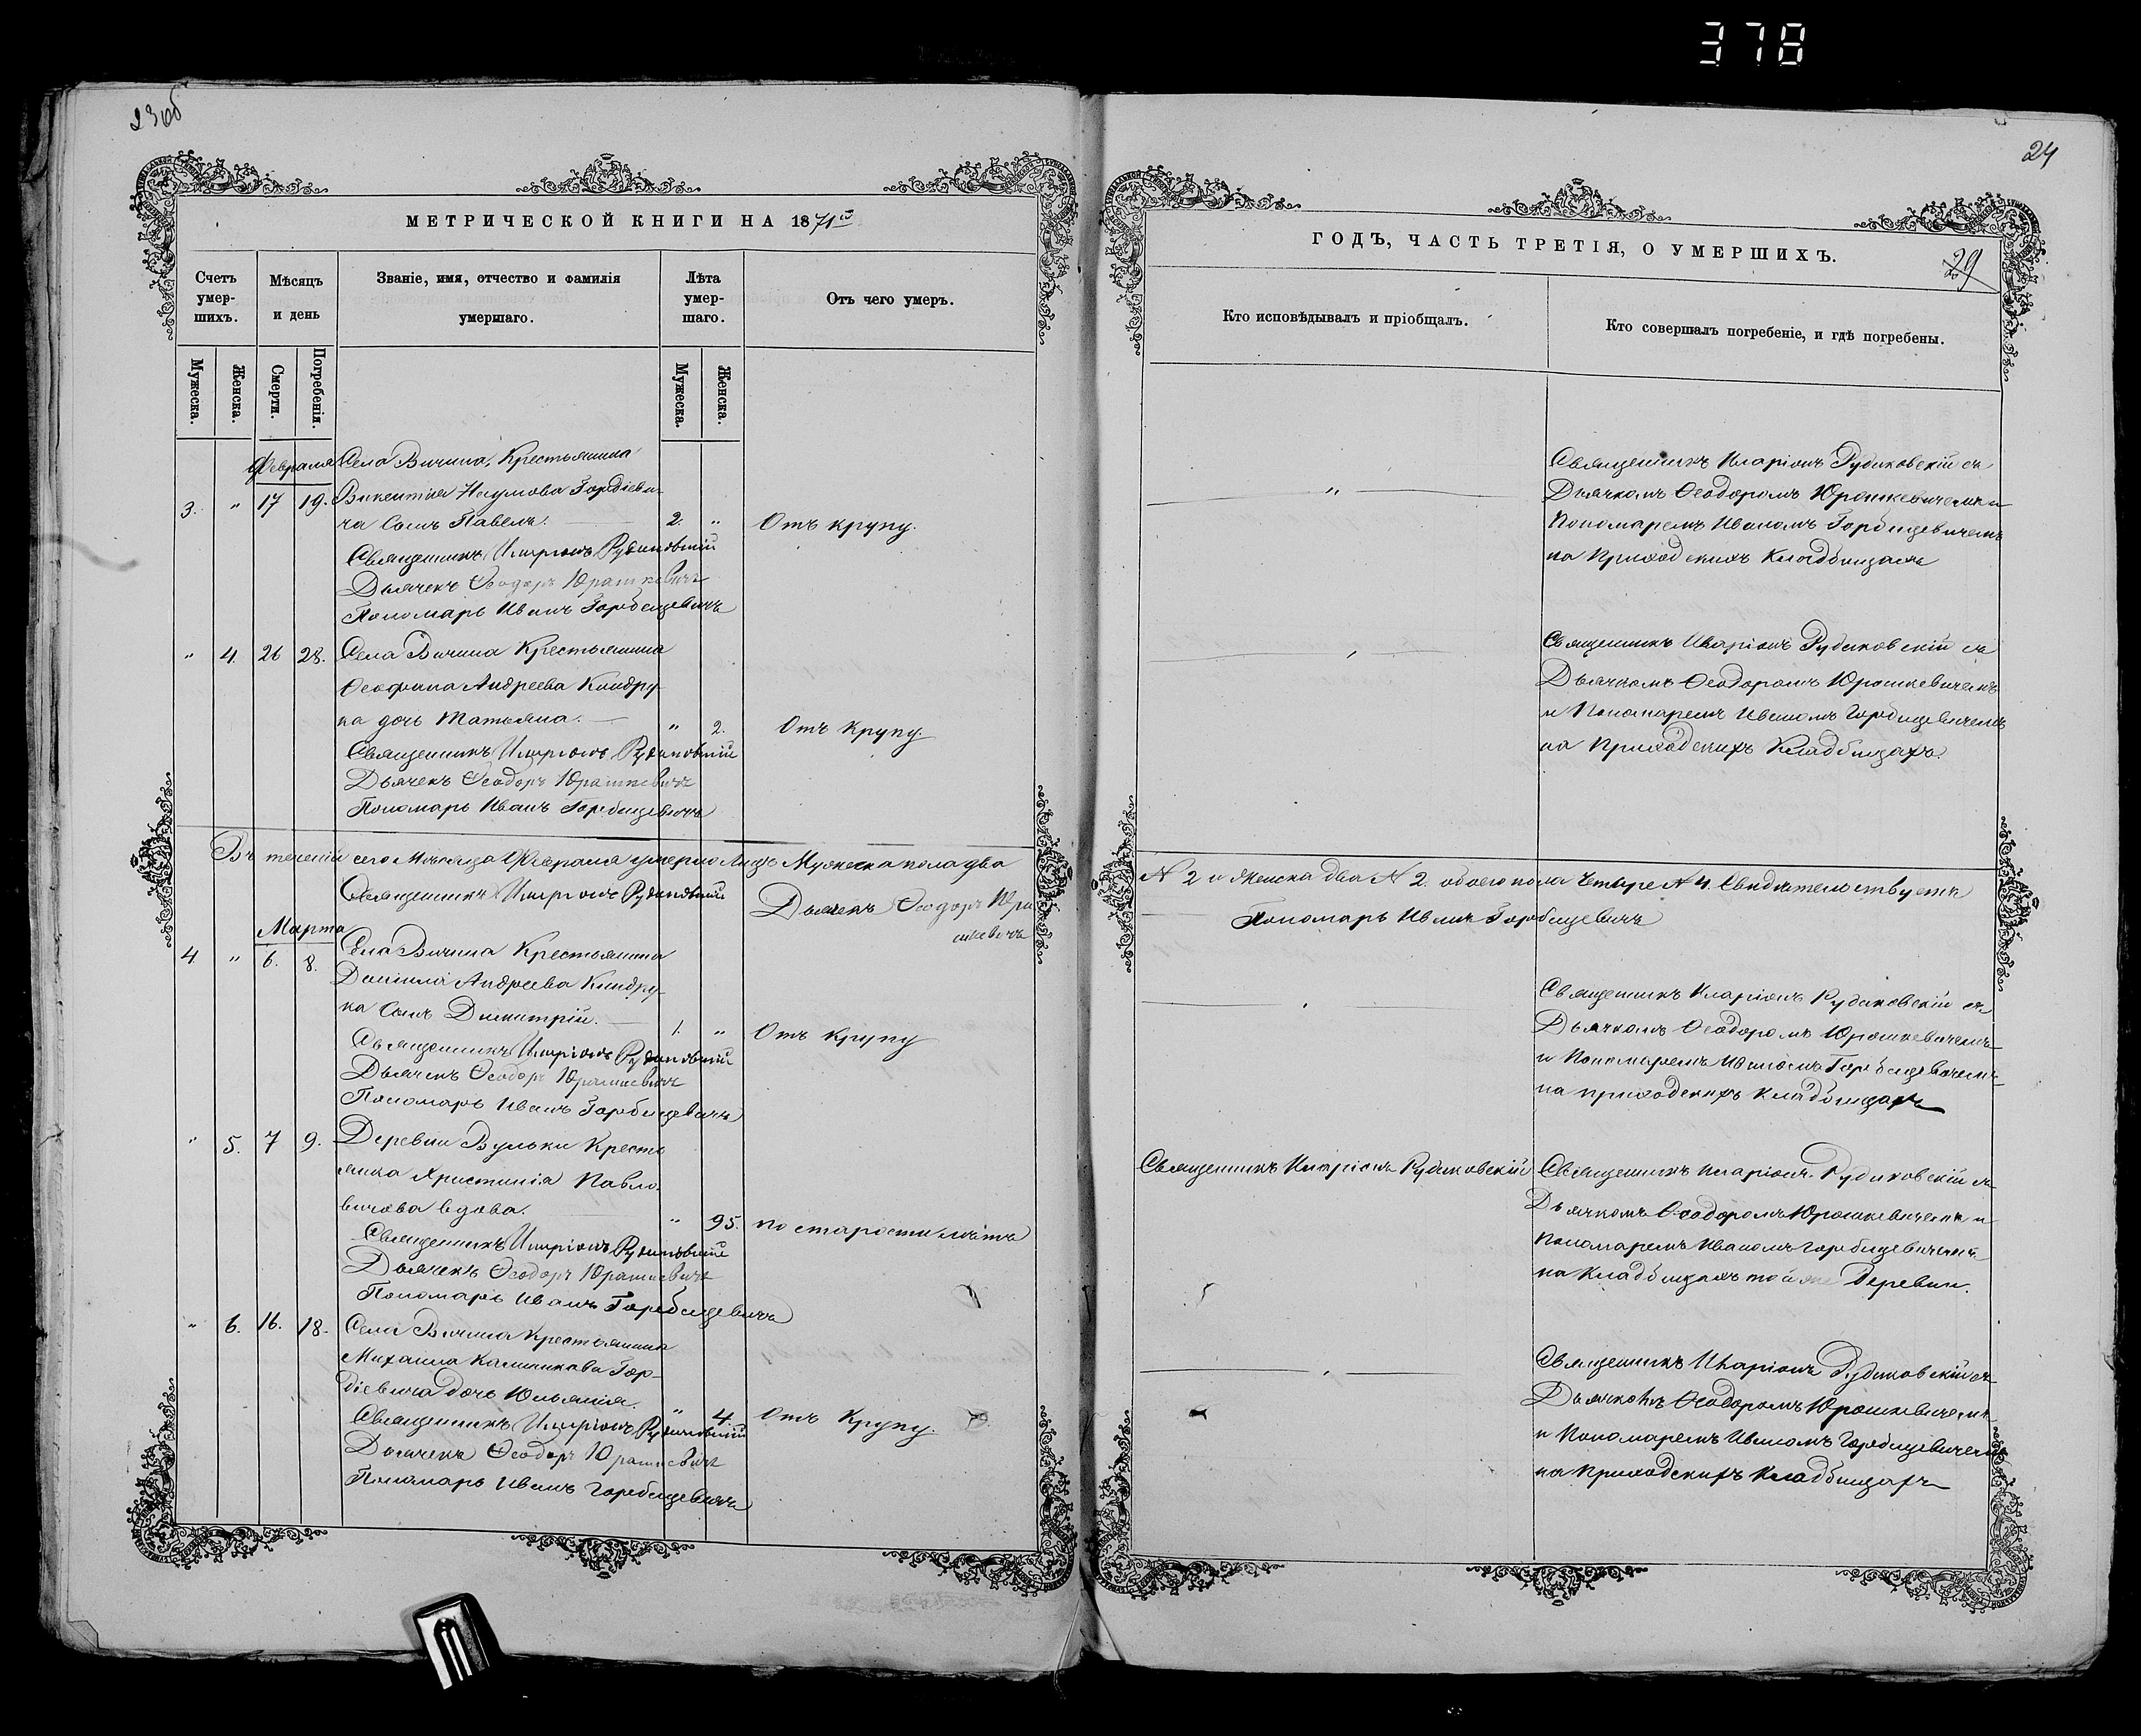 378
23об
24
МЕТРИЧЕСКОЙ КНИГИ НА 1871й
Счетъ умер-шихъ.
Мѣсяцъ и день
Званіе, имя, отчество и фамилія умершаго.
Лѣта умер-шаго.
Отъ чего умеръ.
Мужеска.
Женска.
Смерти.
Погребенія.
Мужеска.
Женска.
Февраля Села Вичина, Крестьянина
3. " 17 19. Викентія Наумова Гордіеви-
ча Сынъ Павелъ. 2. " Отъ крупу.
Священникъ Иларіонъ Рудиковскій
Дьячекъ Ѳеодоръ Юрашкевичъ
Пономарь Иванъ Горбацевичъ
" 4. 26 28. Села Вичина Крестьянина
Ѳеофана Андреева Киндру-
ка дочь Татьяна. " 2. Отъ Крупу.
Священникъ Иларіонъ Рудиковскій
Дьячекъ Ѳеодоръ Юрашкевичъ
Пономарь Иванъ Горбацевичъ
Въ теченіи сего Мѣсяца Февраля умерло Лицъ Мужеска пола два
Священникъ Иларіонъ Рудиковскій Дьячекъ Ѳеодоръ Юра
шкевичъ
Марта
4. " 6. 8. Села Вичина Крестьянина
Даніила Андреева Киндру-
ка Сынъ Димитрій. 1. " Отъ крупу
Священникъ Иларіонъ Рудиковскій
Дьячекъ Ѳеодоръ Юрашкевичъ
Пономарь Иванъ Горбацевичъ
" 5. 7 9. Деревни Вульки Кресть
янка Христинія Павло-
вичова вдова. " 95. по старости лѣтъ
Священникъ Иларіонъ Рудиковскій
Дьячекъ Ѳеодоръ Юрашкевичъ
Пономарь Иванъ Горбацевичъ
" 6. 16. 18. Села Вичина Крестьянина
Михаила Калиникова Гор-
діевича дочь Юліанія. " 4. Отъ Крупу.
Священникъ Иларіонъ Рудиковскій
Дьячекъ Ѳеодоръ Юрашкевичъ
Пономарь Иванъ Горбацевичъ
ГОДЪ, ЧАСТЬ ТРЕТІЯ, О УМЕРШИХЪ.
29
Кто исповѣдывалъ и пріобщалъ.
Кто совершалъ погребеніе, и гдѣ погребены.
Священникъ Иларіонъ Рудиковскій съ
" Дьячкомъ Ѳеодоромъ Юрашкевичемъ и
Пономаремъ Иваномъ Горбацевичемъ
на Приходскихъ Кладбищахъ
Священникъ Иларіонъ Рудиковскій съ
Дьячкомъ Ѳеодоромъ Юрашкевичемъ
и Пономаремъ Иваномъ Горбацевичемъ
на Приходскихъ Кладбищахъ.
№ 2 и Женска два № 2. обоего пола Четыре № 4. Свидѣтельствуетъ
Пономарь Иванъ Горбацевичъ
Священникъ Иларіонъ Рудиковскій съ
Дьячкомъ Ѳеодоромъ Юрашкевичемъ
и Пономаремъ Иваномъ Горбацевичемъ
на приходскихъ Кладбищахъ
Священникъ Иларіонъ Рудиковскій Священникъ Иларіонъ Рудиковскій съ
Дьячкомъ Ѳеодоромъ Юрашкевичемъ и
Пономаремъ Иваномъ Горбацевичемъ
на Кладбищахъ той же Деревни.
Священникъ Иларіонъ Рудиковскій съ
Дьячкомъ Ѳеодоромъ Юрашкевичемъ
и Пономаремъ Иваномъ Горбацевичемъ
на Приходскихъ Кладбищахъ